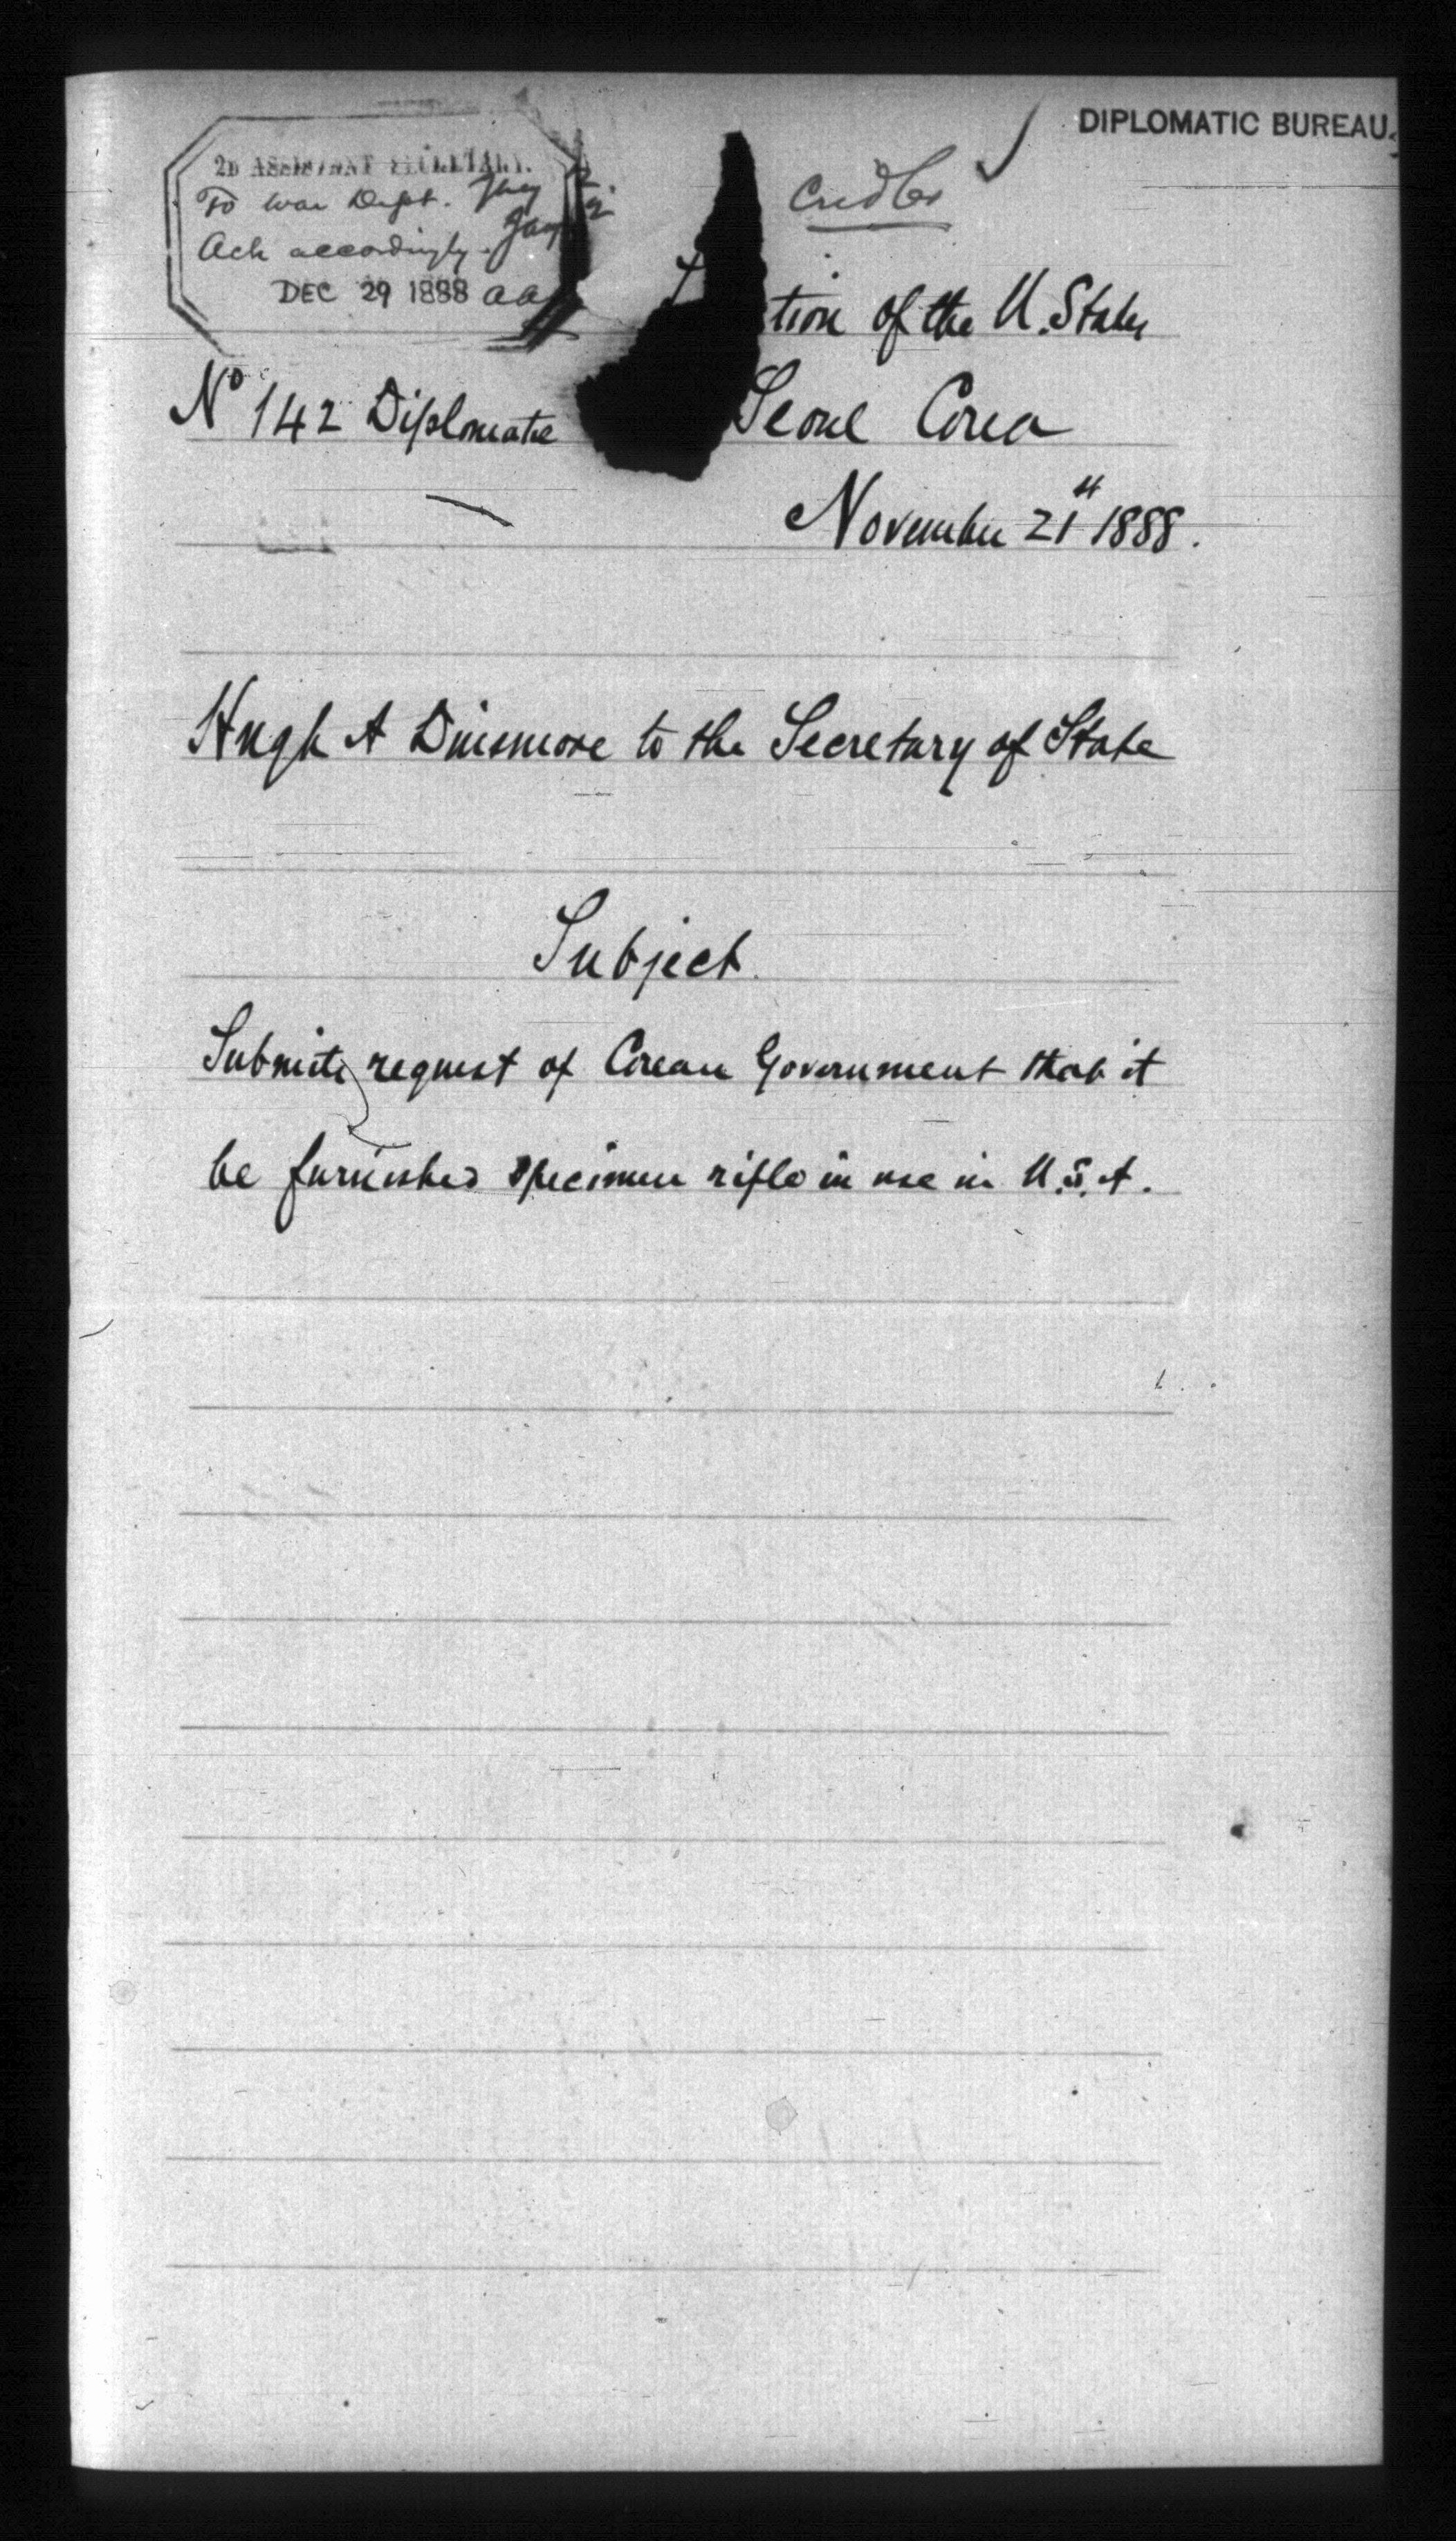 DIPLOMATIC BUREAU.
2D ASSISTANT SECRETARY.
To War Dept.
Ack accordingly.
DEC 29 1888 aaa
Cridler
tion of the U. States
No 142 Diplomatic
Seoul Corea
November 21st 1888.
Hugh A Dinsmore to the Secretary of State
Subject.
Submits request of Corean Government that it
be furnished specimen rifle in use in U.S.A.